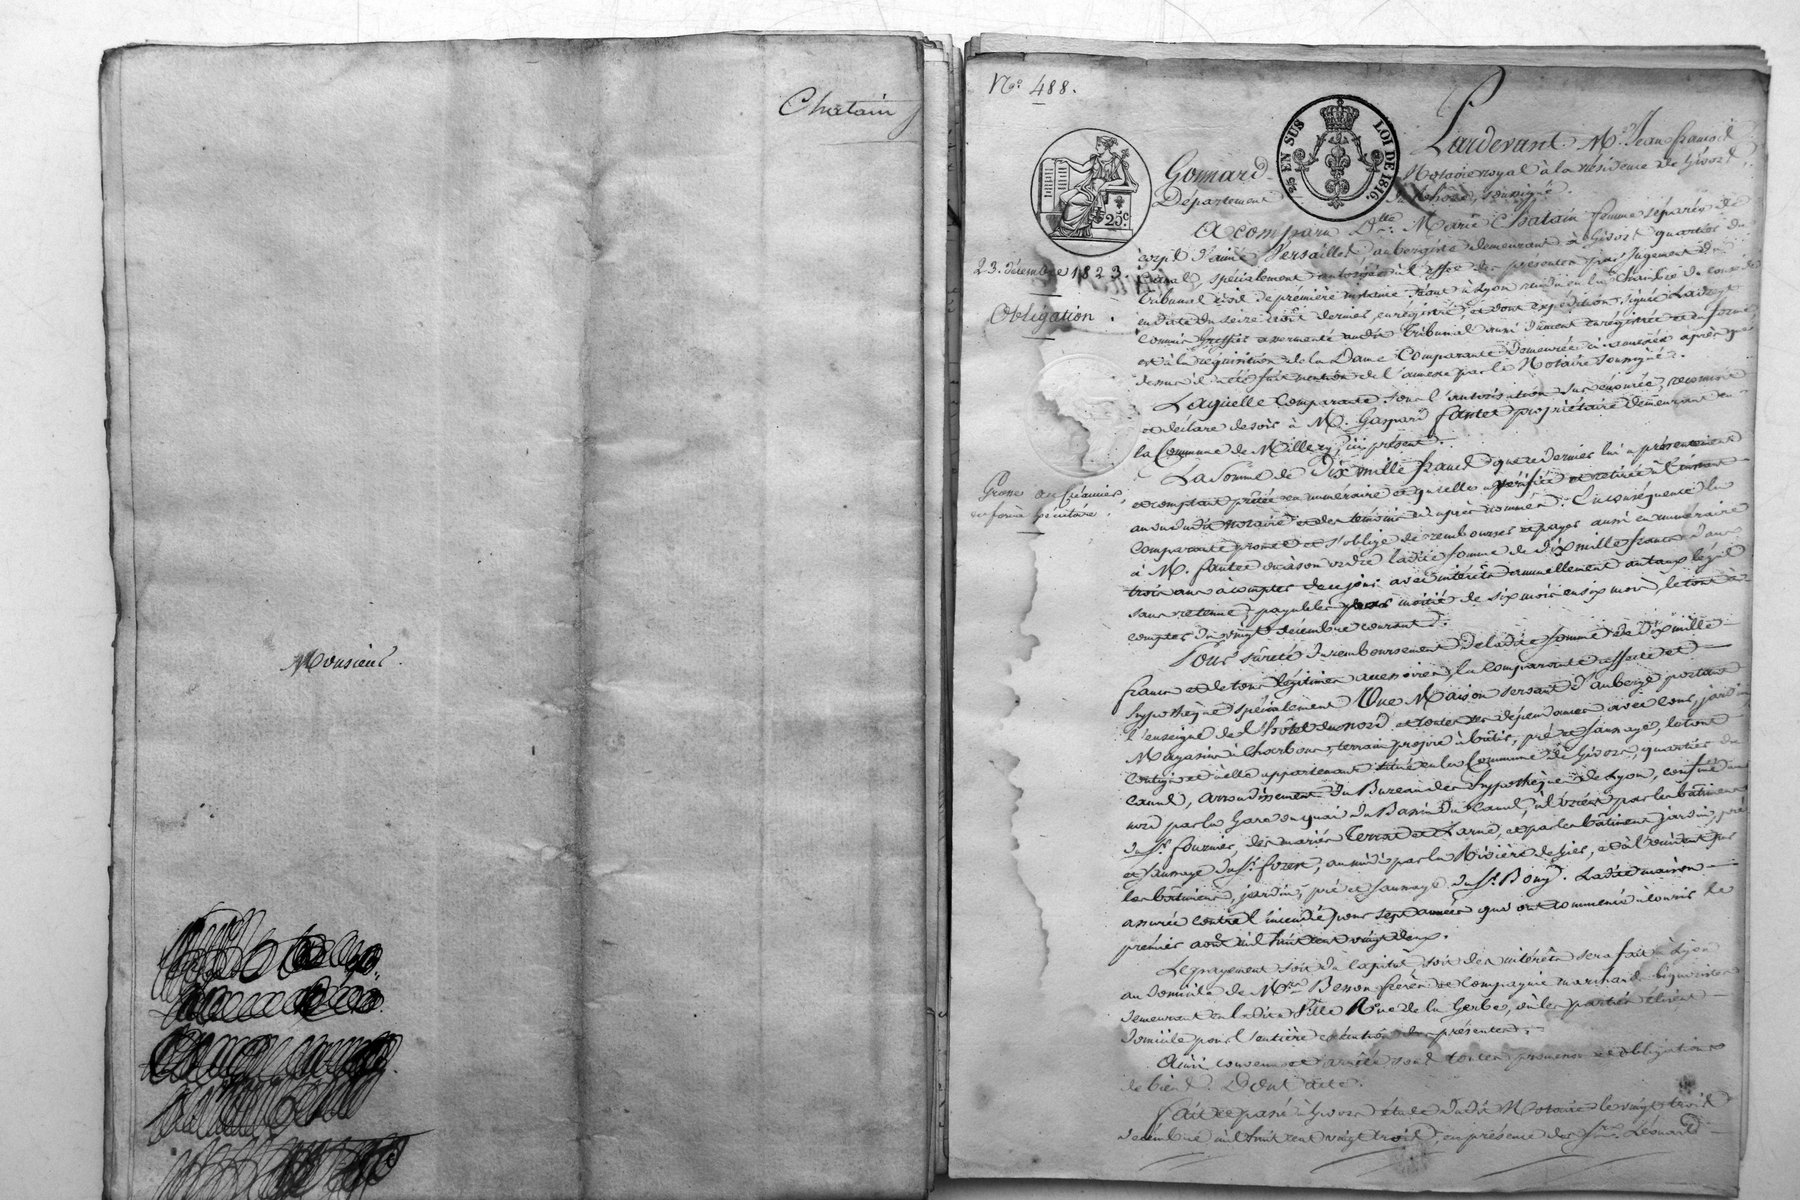 Chatain
Monsieur.
N.° 488.
25 EN SUS
LOI DE 1816.
25.c
23. décembre 1823.
Obligation.
Grosse au créancier
en forme exécutoire.
Pardevant M.e Jean françois
Gonnard Notaire royal à la résidence de Givors
Département du Rhône, soussigné.
A comparu D.lle Marie Chatain femme séparée de
corps d'aimé Versaille, aubergiste demeurant à Givors quartier du
Canal, spécialement autorisée à l'effet des présentes par Jugement du
tribunal civil de première instance séant à Lyon rendu en la Chambre du conseil
en date du seize août dernier, enregistré, et dont expédition signée
commis Greffier assermenté audit Tribunal aussi dument enregistrée et en forme,
est à la réquisition de la Dame Comparante demeurée annexée après que
dessus il a été fait mention de l'annexe par le Notaire soussigné.
Laquelle Comparante sous l'autorisation sus énoncée, reconnait
et déclare devoir à M. Gaspard fantet propriétaire demeurant en
la Commune de Millery, ici présent.
La somme de Dix mille francs que ce dernier lui a présentement
et comptant prêtée en numéraire et qu'elle a vérifiée et retirée à
au vu dudit notaire et des témoins ci après nommés. En conséquence la
Comparante promet et s'oblige de rembourser et payer aussi en numéraire
à M. fantet ou à son ordre ladite somme de dix mille francs dans
trois ans à compter de ce jour avec intérêts annuellement au taux légal
sans retenue, payables par moitié de six mois en six mois, le tout à
compter du vingt décembre courant.
Pour sûreté du remboursement de ladite somme de Dix mille
francs et de tous légitimes accessoires, la Comparante affecte et
hypothèque spécialement Une Maison servant d'auberge portant
l'enseigne de l'hôtel du nord et toutes ses dépendances avec cour, jardin,
Magasin à charbons, terrain propre à bâtir, pré et saunage, le tout
contigu et à elle appartenant situé en la Commune de Givors, quartier du
canal, arrondissement du Bureau des hypothèques de Lyon, confiné au
nord par la Gare ou quai du Bassin du canal, à l'orient par les bâtiments
du S.r fournier, des mariés Terrat et Larue, et par les bâtiment, jardin, pré
et saunage du S.r forest, au midi par la Rivière de Gier, et à l'occident par
les bâtiments, jardin, pré et saunage du S.r Bony. Ladite maison
assurée contre l'incendie pour sept années qui ont commencé à courir le
premier août mil huit cent vingt deux.
Le payement soit du capital soit des intérêts sera fait à Lyon
au domicile de M.rs Besson frères et Compagnie marchands
demeurant en ladite Ville Rue de la Gerbe, où les parties élisent
domicile pour l'entière exécution des présentes.
Ainsi convenu et arrêté sous toutes promesses et obligations
de biens. Dont acte.
Fait et passé à Givors étude dudit Notaire le vingt trois
décembre mil huit cent vingt trois, en présence des S.rs Léonard